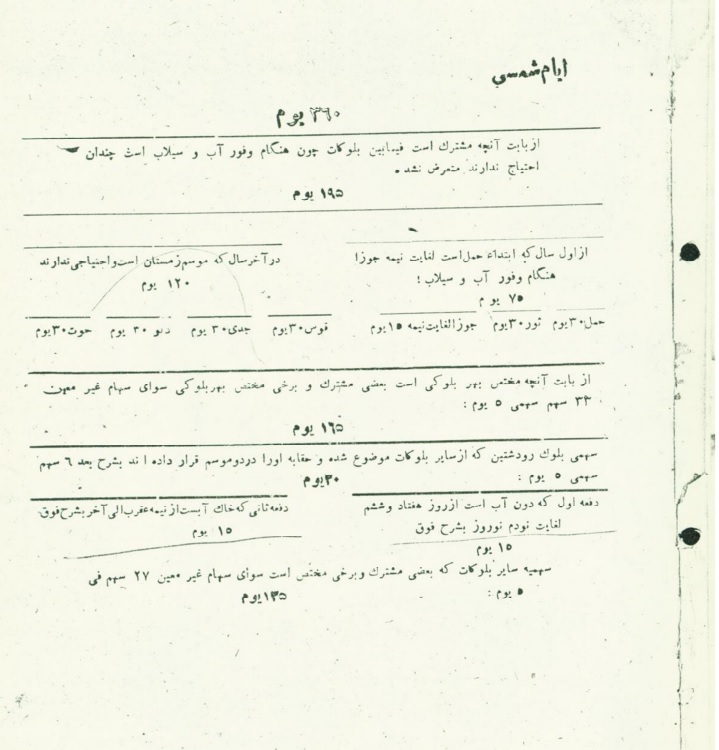 ایام شمسی
۳۶۰ یوم
از بابت آنچه مشترك است فیمابین بلوكات چون هنگام وفور آب و سیلاب است چندان
احتیاج ندارند متعرض نشد .
۱۹۵ یوم
از اول سال که ابتداء حمل است لغایت نیمه جوزا
هنگام وفور آب و سیلاب :
۷۵ یوم
در آخر سال که موسم زمستان است و احتیاجی ندارند
۱۲۰ یوم
حمل ۳۰ یوم ثور ۳۰ یوم جوز الغایت نیمه ۱۵ یوم
قوس ۳۰ یوم جدی ۳۰ یوم دلو ۳۰ یوم حوت ۳۰ یوم
از بابت آنچه مختص بهر بلوکی است بعضی مشترك و برخی مختص بهر بلوکی سوای سهام غیر معین
۳۳ سهم سهمی ۵ یوم :
۱۶۵ یوم
سهمی بلوك رودشتین که از سایر بلوکات موضوع شده و حقابه اورا در دو موسم قرار داده اند بشرح بعد ۶ سهم
سهمی ۵ یوم :
۳۰ یوم
دفعه اول که دون آب است از روز هفتاد و ششم
لغایت نودم نوروز بشرح فوق
۱۵ یوم
دفعه ثانی که خاك آبست از نیمه عقرب الی آخر بشرح فوق
۱۵ یوم
سهمیه سایر بلوکات که بعضی مشترك و برخی مختص است سوای سهام غیر معین ۲۷ سهم فی
۵ یوم :
۱۳۵ یوم